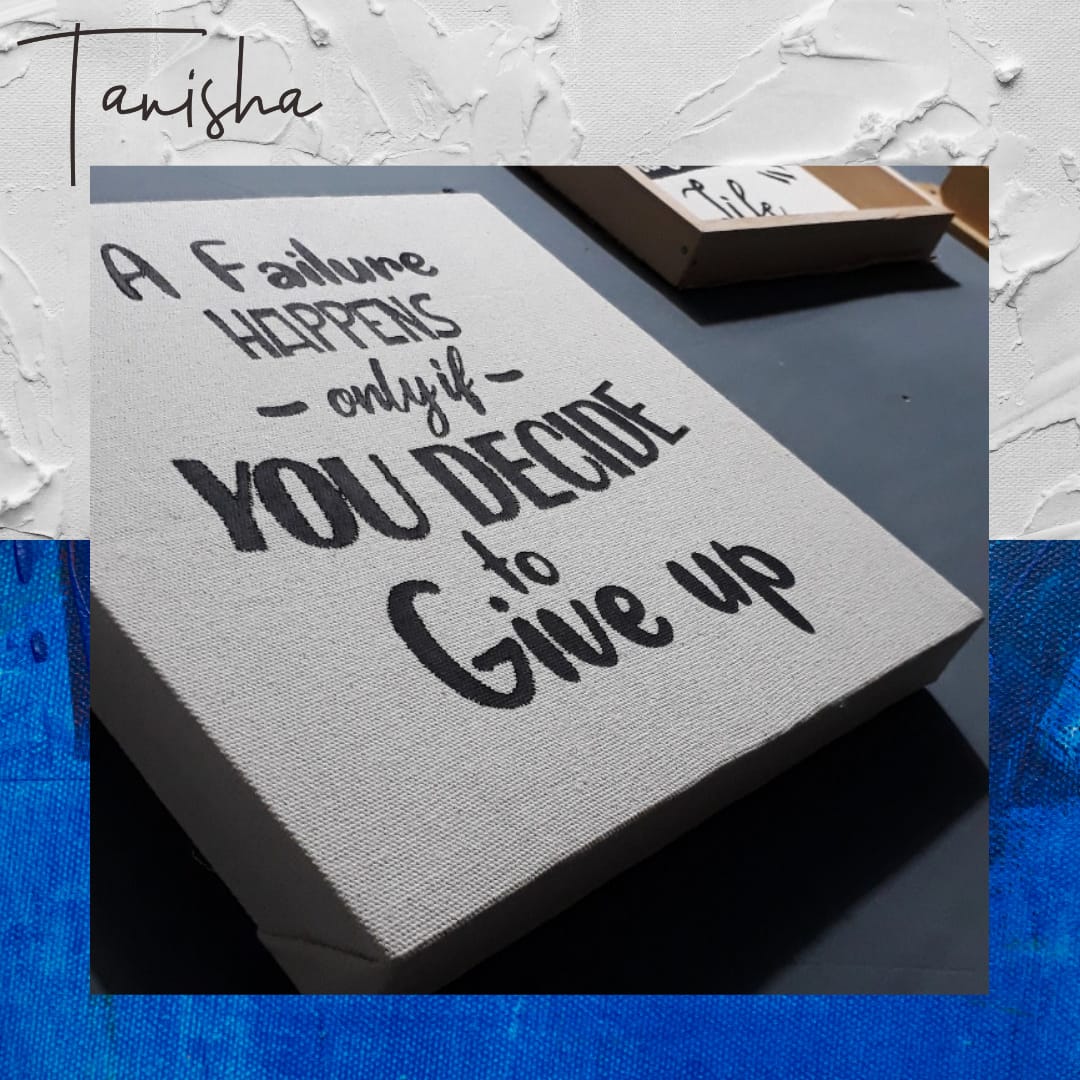 Tanisha
A Failure
HAPPENS
- only if -
YOU DECIDE
to
Give up